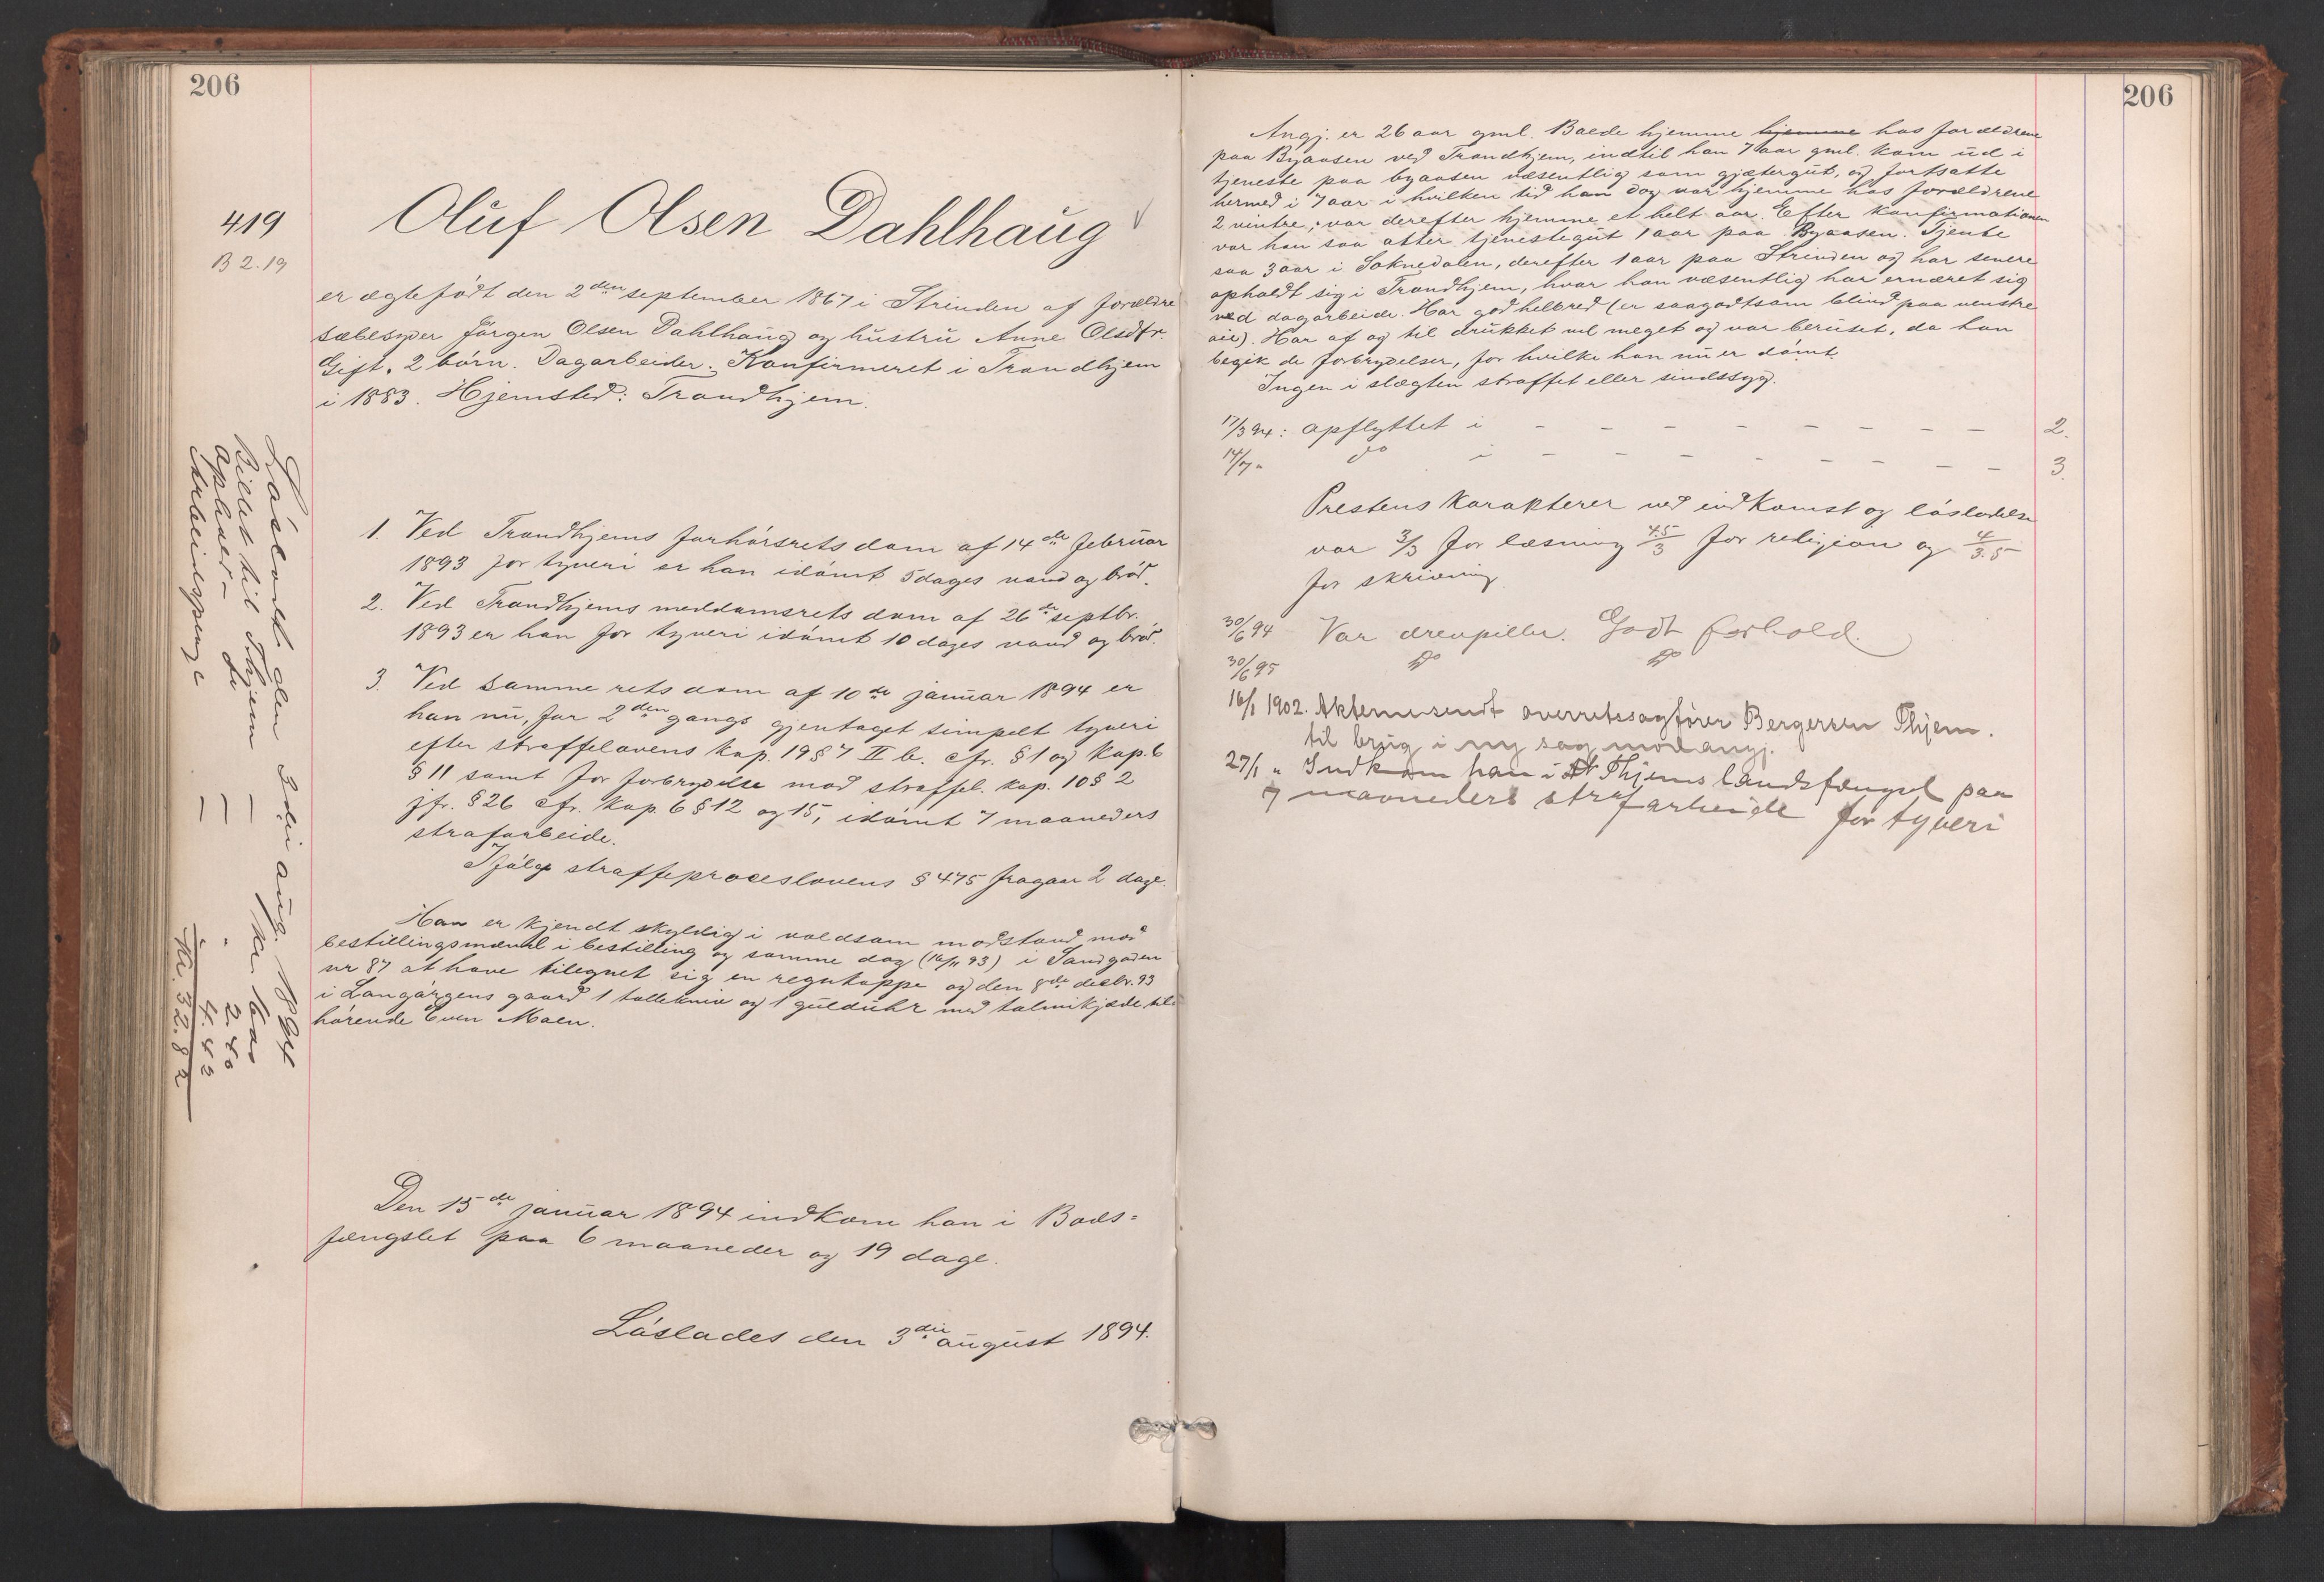 206
419
B 2.19
Oluf Olsen Dahlhaug
er ægtefødt den 2den september 1867 i Strinden af forældre
sæbesyder Jørgen Olsen Dahlhaug og hustru Anne Olsdtr.
Gift. 2 børn. Dagarbeider. Konfirmeret i Trondhjem
i 1883. Hjemsted: Trondhjem.
1. Ved Trondhjems forhørsrets dom af 14de februar
1893 for tyveri er han idømt 5 dages vand og brød.
2. Ved Trondhjems meddomsrets dom af 26de septbr.
1893 er han for tyveri idømt 10 dages vand og brød.
3. Ved samme rets dom af 10de januar 1894 er
han nu, for 2den gangs gjentaget simpelt tyveri
efter straffelovens kap. 19 § 7 II b. cfr. § 1 og kap. 6
§ 11 samt for forbrydelse mod straffel. kap. 10 § 2
jfr. § 26 cfr. kap. 6 § 12 og 15, idømt 7 maaneders
strafarbeide.
Ifølge straffeproceslovens § 475 fragaar 2 dage.
Han er kjendt skyldig i voldsom modstand mod
bestillingsmænd i bestilling og samme dag (16/11 93) i Sandgaden
nr 87 at have tilegnet sig en regnkappe og den 8de decbr. 93
i Langørgens gaard 1 tollekniv og 1 guldúhr med talmikjæde til-
hørende Even Moen.
Den 15de januar 1894 indkom han i Bods=
fængslet paa 6 maaneder og 19 dage.
Løslades den 3die august 1894.
Løsladt den 3die aug. 1894
Billet til Thjem — Kr. 6.00
Ophold - do — " 2.40
Arbeidspenge — 4.42
Kr. 32.82
206
Angj. er 26 aar gml. Boede hjemme hjemme hos forældrene
paa Byaasen ved Trondhjem, indtil han 7 aar gml. kom ud i
tjeneste paa byaasen væsentlig som gjætergut, og fortsatte
hermed i 7 aar i hvilken tid han dog var hjemme hos forældrene
2 vintre; var derefter hjemme et helt aar. Efter konfirmationen
var han saa atter tjenestegut 1 aar paa Byaasen. Tjente
saa 3 aar i Soknedalen, derefter 1 aar paa Strinden og har senere
opholdt sig i Trondhjem, hvor han væsentlig har ernæret sig
ved dagarbeide. Har god helbred (er saagodtsom blind paa venstre
øie). Har af og til drukket vel meget og var beruset, da han
begik de forbrydelser, for hvilke han nu er dømt.
Ingen i slægten straffet eller sindssyg.
17/3 94: opflyttet i - - - - - - - - 2.
14/7 " do i - - - - - - - - 3.
Prestens karakterer ved indkomst og løsladelse
var 3/3 for læsning 4.5/3 for religion og 4/3.5
for skrivning.
30/6 94 Var drevpiller. Godt forhold.
30/6 95 do do
16/1 1902. Akterne sendt overretssagfører Bergersen Thjem.
til brug i ny sag mod angj.
27/1 " Indkom han i Thjems landsfængsel paa
7 maaneders strafarbeide for tyveri